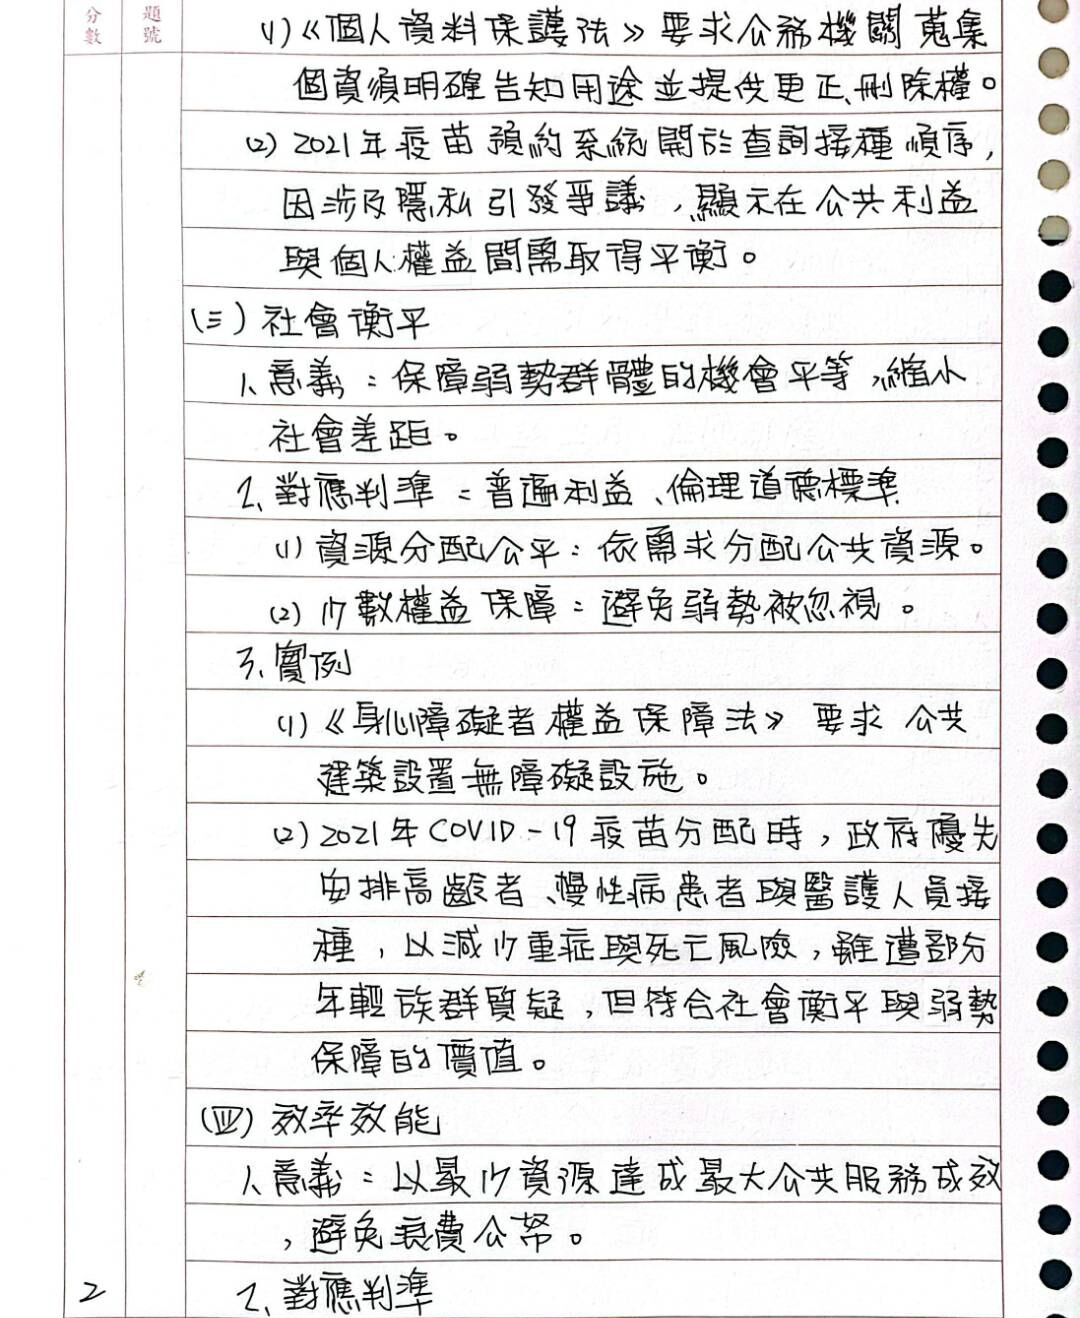 分數
題號
(1)《個人資料保護法》要求公務機關蒐集
個資須明確告知用途並提供更正、刪除權。
(2) 2021年疫苗預約系統開放查詢接種順序,
因涉及隱私引發爭議,顯示在公共利益
與個人權益間需取得平衡。
(三) 社會衡平
1、意義:保障弱勢群體的機會平等,縮小
社會差距。
2、對應判準:普遍利益、倫理道德標準
(1) 資源分配公平:依需求分配公共資源。
(2) 少數權益保障:避免弱勢被忽視。
3、實例
(1)《身心障礙者權益保障法》要求公共
建築設置無障礙設施。
(2) 2021年COVID-19疫苗分配時,政府優先
安排高齡者、慢性病患者與醫護人員接
種,以減少重症與死亡風險,雖遭部分
年輕族群質疑,但符合社會衡平與弱勢
保障的價值。
(四) 效率效能
1、意義:以最少資源達成最大公共服務成效
,避免浪費公帑。
2、對應判準
2